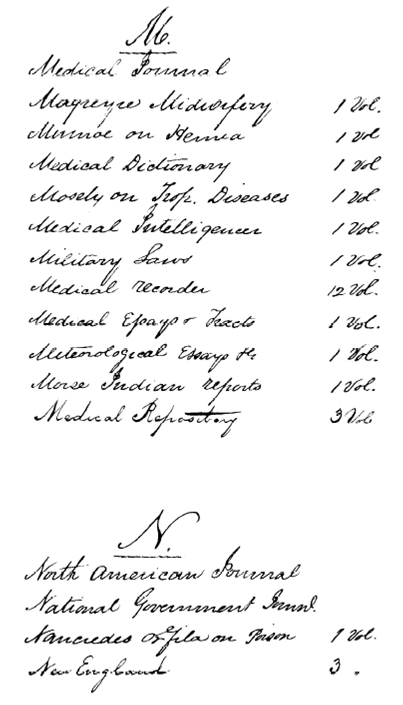 M.
Medical Journal
Magreyre Midwifery 1 Vol.
Munroe on Hernia 1 Vol
Medical Dictionary 1 Vol
Mosely on Trop. Diseases 1 Vol.
Medical Intelligencer 1 Vol.
Military Laws 1 Vol.
Medical recorder 12 Vol.
Medical Essays & Tracts 1 Vol.
Meteorological Essays &c 1 Vol.
Morse Indian reports 1 Vol.
Medical Repository 3 Vol
N.
North American Journal
National Government Journl.
Nancredes Orfila on Poison 1 Vol.
New England 3 "